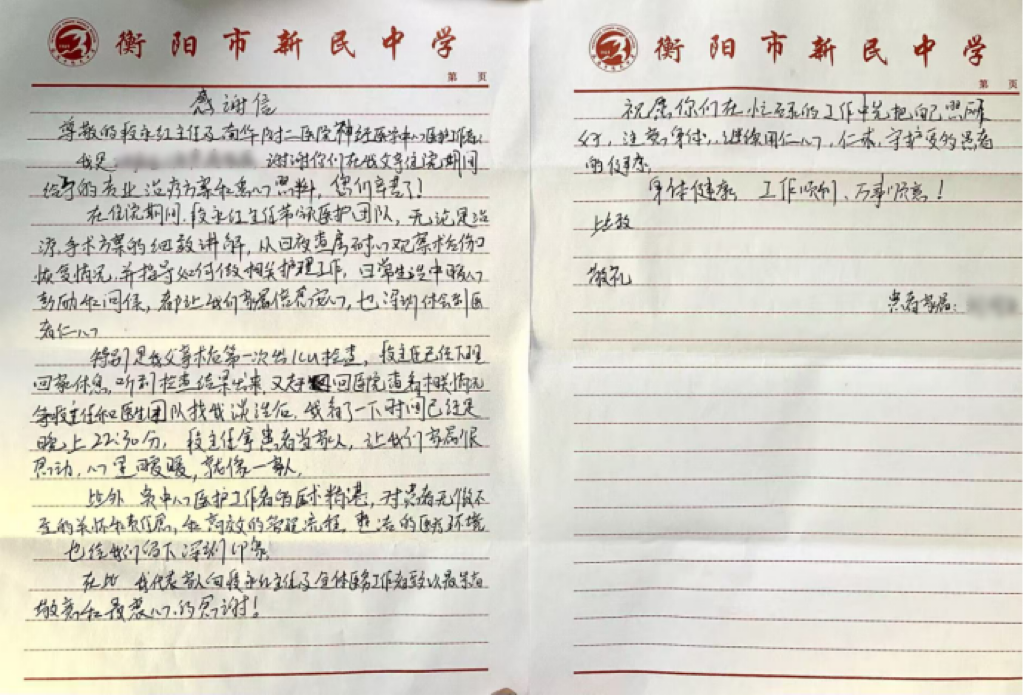 衡阳市新民中学
第 页
感谢信
尊敬的段永红主任及南华附二医院神经医学中心医护工作者:
我是 谢谢你们在我父亲住院期间
给予的专业治疗方案和悉心照料,您们辛苦了!
在住院期间,段永红主任带领医护团队,无论是治
疗、手术方案的细致讲解,从日夜查房耐心观察术后伤口
恢复情况,并指导如何做相关护理工作,日常生活中暖心
鼓励和问候,都让我们家属倍感安心,也深深体会到医
者仁心
特别是我父亲术后第一次出ICU检查,段主任已经下班
回家休息,听到检查结果出来,又赶回医院查看相关情况
等段主任和医生团队找我谈话后,我看了一下时间已经是
晚上22:30分,段主任拿患者当家人,让我们家属很
感动,心里暖暖,就像一家人.
此外 贵中心医护工作者的医术精湛,对患者无微不
至的关怀和责任感,和高效的管理流程,整洁的医疗环境
也给我们留下深刻印象
在此 我代表家人向段永红主任及全体医务工作者致以最崇高
敬意和最衷心的感谢!
衡阳市新民中学
第 页
祝愿你们在忙碌的工作中先把自己照顾
好,注意身体,继续用仁心,仁术,守护更多患者
的健康.
身体健康 工作顺利,万事顺意!
此致
敬礼
患者家属: